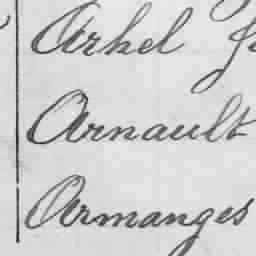 Arkel
Arnault
Armanges